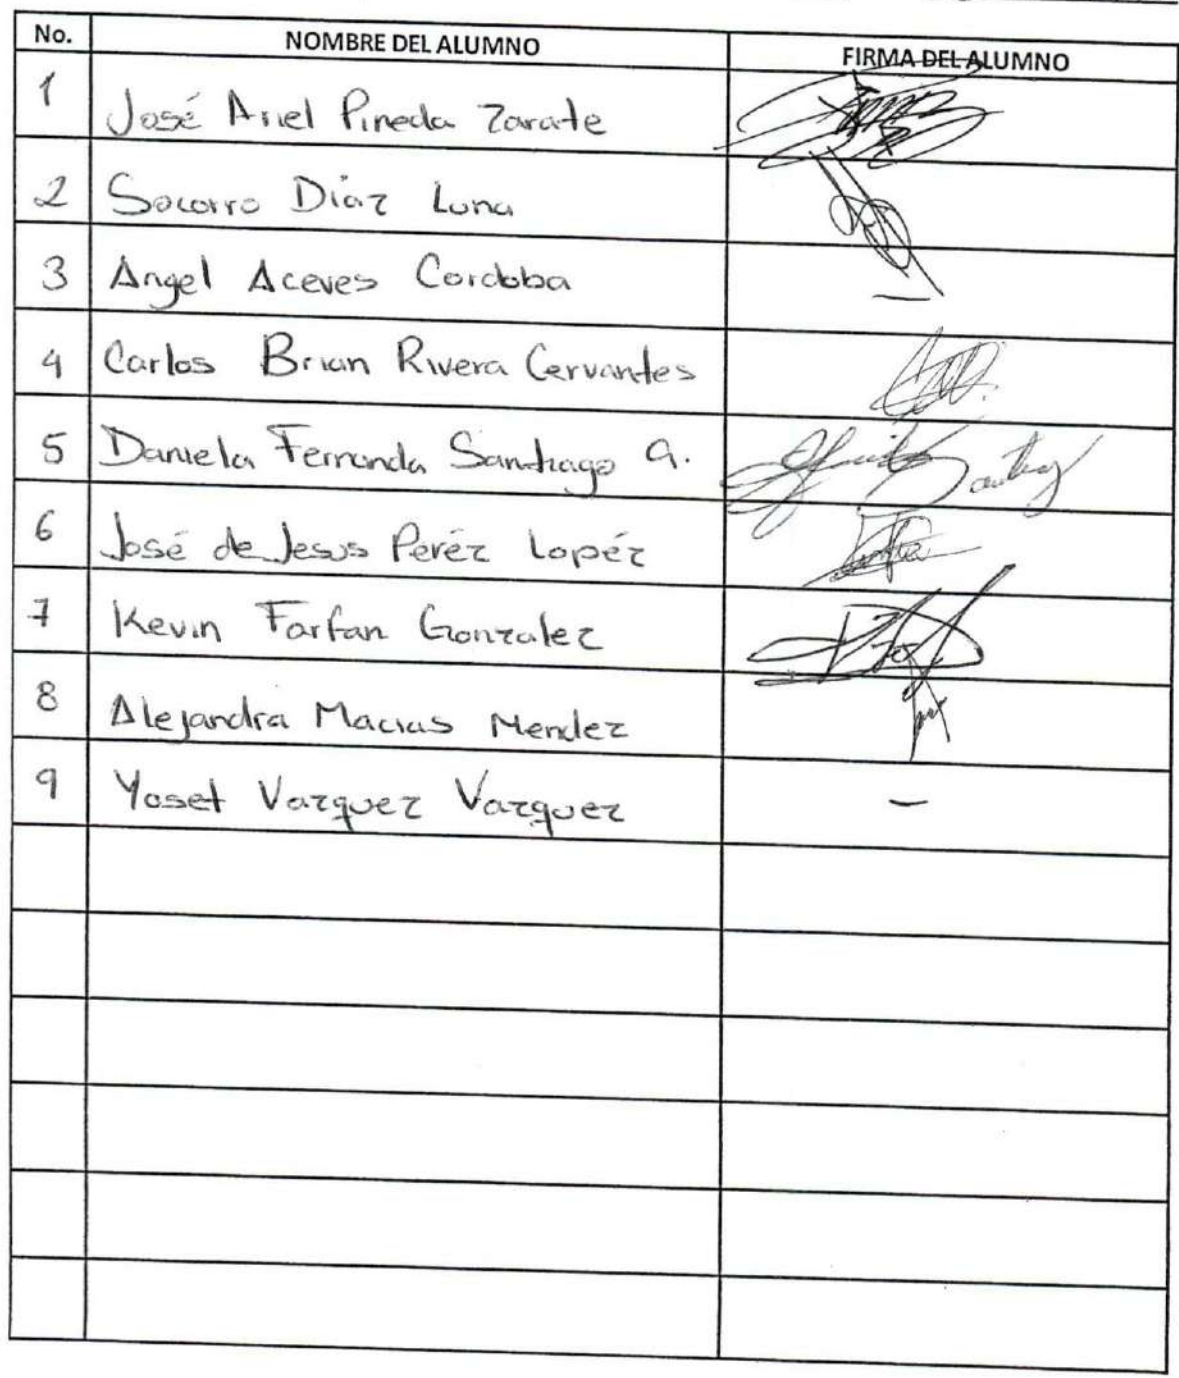 No. NOMBRE DEL ALUMNO FIRMA DEL ALUMNO
1 José Ariel Pineda Zarate
2 Socorro Díaz Luna
3 Angel Aceves Cordoba —
4 Carlos Brian Rivera Cervantes
5 Daniela Fernanda Santiago G.
6 José de Jesus Peréz Lopéz
7 Kevin Farfan Gonzalez
8 Alejandra Macias Mendez
9 Yoset Vazquez Vazquez —